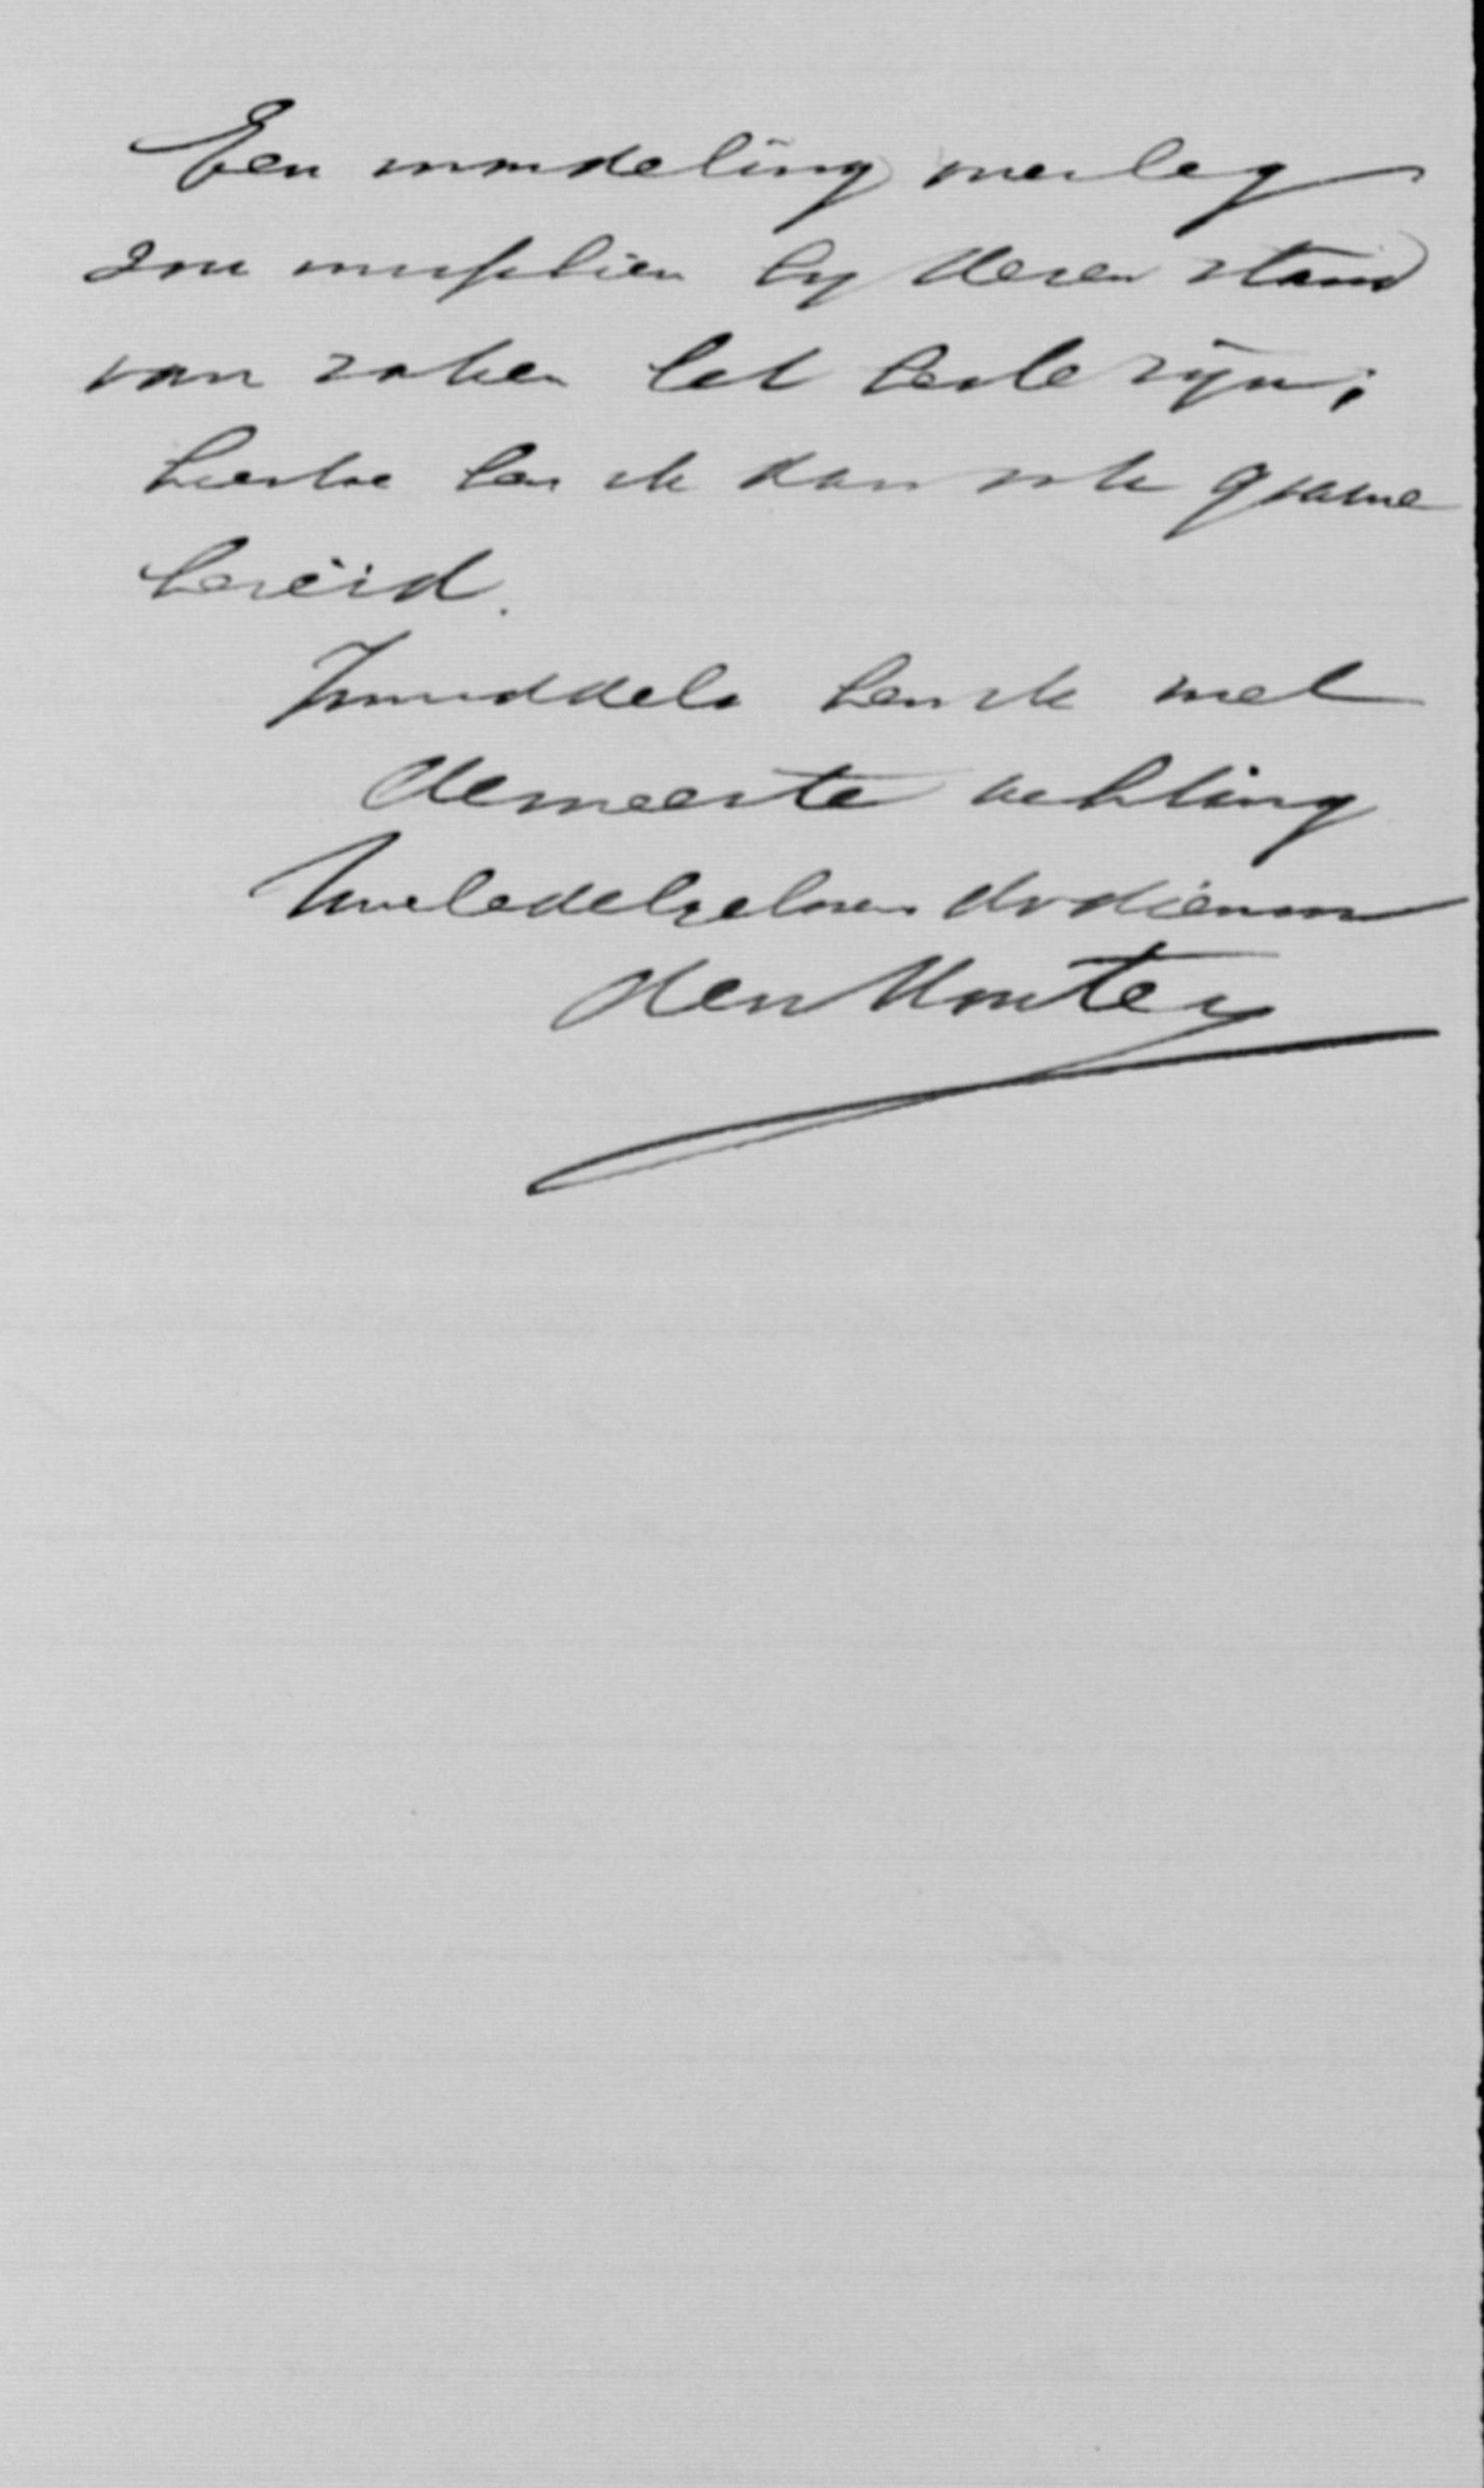 Een mondeling overleg
zou misschien by dezen stand
van zaken het beste zijn;
hiertoe ben ik dan ook gaarne
bereid.
Inmiddels ben ik met
de meeste achting
Uweledelgeboren dv dienaar